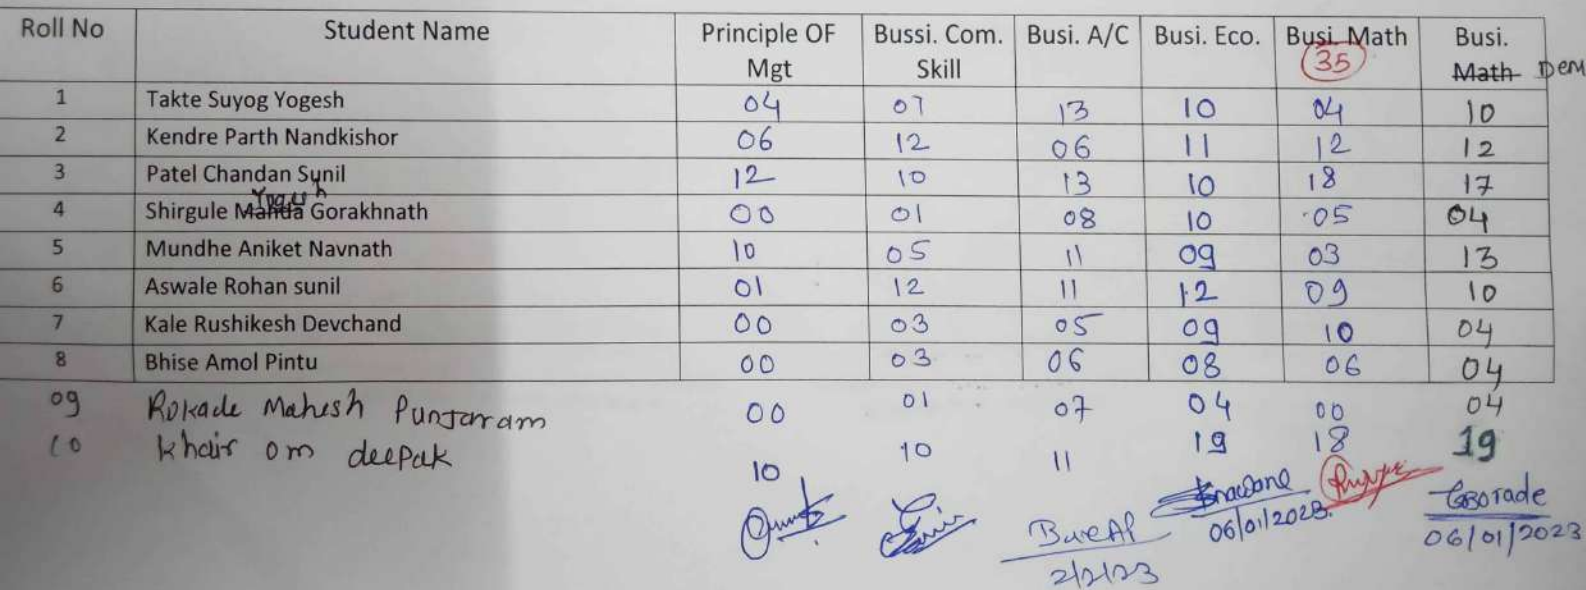 Roll No Student Name Principle OF Mgt Bussi. Com. Skill Busi. A/C Busi. Eco. Busi. Math 35 Busi. Math Dem
1 Takte Suyog Yogesh 04 07 13 10 04 10
2 Kendre Parth Nandkishor 06 12 06 11 12 12
3 Patel Chandan Sunil 12 10 13 10 18 17
4 Shirgule Manda Yogesh Gorakhnath 00 01 08 10 05 04
5 Mundhe Aniket Navnath 10 05 11 09 03 13
6 Aswale Rohan sunil 01 12 11 12 09 10
7 Kale Rushikesh Devchand 00 03 05 09 10 04
8 Bhise Amol Pintu 00 03 06 08 06 04
09 Rokade Mahesh Punjaram 00 01 07 04 00 04
10 khair om deepak 10 10 11 19 18 19
06/01/2023. 06/01/2023